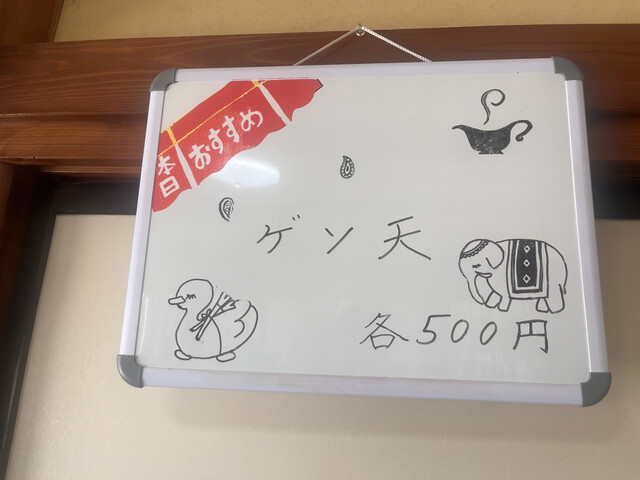 本日
おすすめ
ゲソ天
各500円